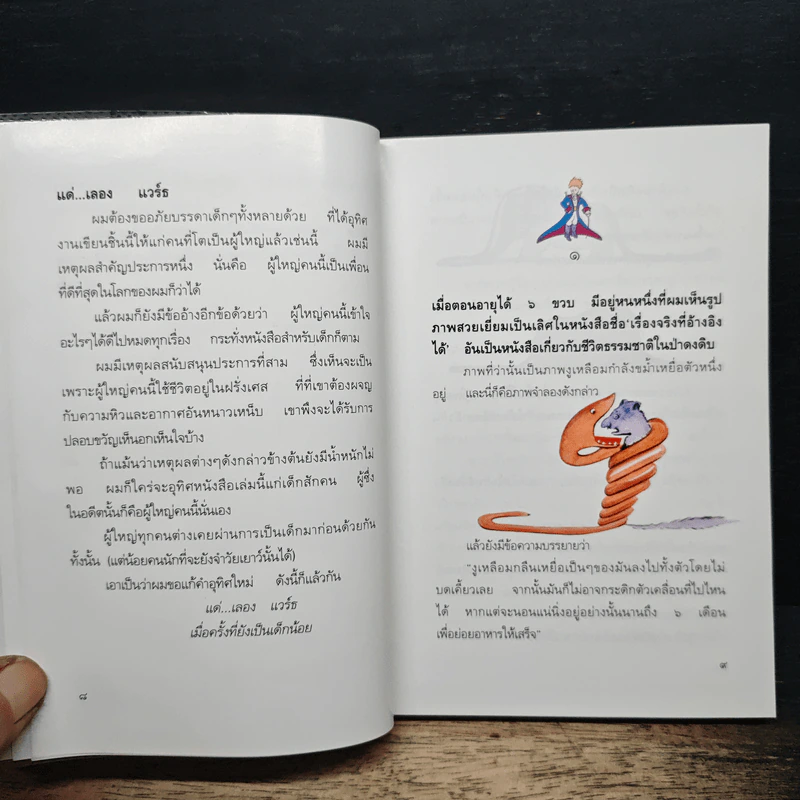 แด่...เลออง แวร์ธ
ผมต้องขออภัยบรรดาเด็กๆทั้งหลายด้วย ที่ได้อุทิศ
งานเขียนชิ้นนี้ให้แก่คนที่โตเป็นผู้ใหญ่แล้วเช่นนี้ ผมมี
เหตุผลสำคัญประการหนึ่ง นั่นคือ ผู้ใหญ่คนนี้เป็นเพื่อน
ที่ดีที่สุดในโลกของผมก็ว่าได้
แล้วผมก็ยังมีข้ออ้างอีกข้อด้วยว่า ผู้ใหญ่คนนี้เข้าใจ
อะไรๆได้ดีไปหมดทุกเรื่อง กระทั่งหนังสือสำหรับเด็กก็ตาม
ผมมีเหตุผลสนับสนุนประการที่สาม ซึ่งเห็นจะเป็น
เพราะผู้ใหญ่คนนี้ใช้ชีวิตอยู่ในฝรั่งเศส ที่ที่เขาต้องผจญ
กับความหิวและอากาศอันหนาวเหน็บ เขาพึงจะได้รับการ
ปลอบขวัญเห็นอกเห็นใจบ้าง
ถ้าแม้นว่าเหตุผลต่างๆดังกล่าวข้างต้นยังมีน้ำหนักไม่
พอ ผมก็ใคร่จะอุทิศหนังสือเล่มนี้แก่เด็กสักคน ผู้ซึ่ง
ในอดีตนั้นก็คือผู้ใหญ่คนนี้นั่นเอง
ผู้ใหญ่ทุกคนต่างเคยผ่านการเป็นเด็กมาก่อนด้วยกัน
ทั้งนั้น (แต่น้อยคนนักที่จะยังจำวัยเยาว์นั้นได้)
เอาเป็นว่าผมขอแก้คำอุทิศใหม่ ดังนี้ก็แล้วกัน
แด่...เลออง แวร์ธ
เมื่อครั้งที่ยังเป็นเด็กน้อย
๘
๑
เมื่อตอนอายุได้ ๖ ขวบ มีอยู่หนหนึ่งที่ผมเห็นรูป
ภาพสวยเยี่ยมเป็นเลิศในหนังสือชื่อ‘เรื่องจริงที่อ้างอิง
ได้’ อันเป็นหนังสือเกี่ยวกับชีวิตธรรมชาติในป่าดงดิบ
ภาพที่ว่านั้นเป็นภาพงูเหลือมกำลังขม้ำเหยื่อตัวหนึ่ง
อยู่ และนี่ก็คือภาพจำลองดังกล่าว
แล้วยังมีข้อความบรรยายว่า
“งูเหลือมกลืนเหยื่อเป็นๆของมันลงไปทั้งตัวโดยไม่
บดเคี้ยวเลย จากนั้นมันก็ไม่อาจกระดิกตัวเคลื่อนที่ไปไหน
ได้ หากแต่จะนอนแน่นิ่งอยู่อย่างนั้นนานถึง ๖ เดือน
เพื่อย่อยอาหารให้เสร็จ”
๙